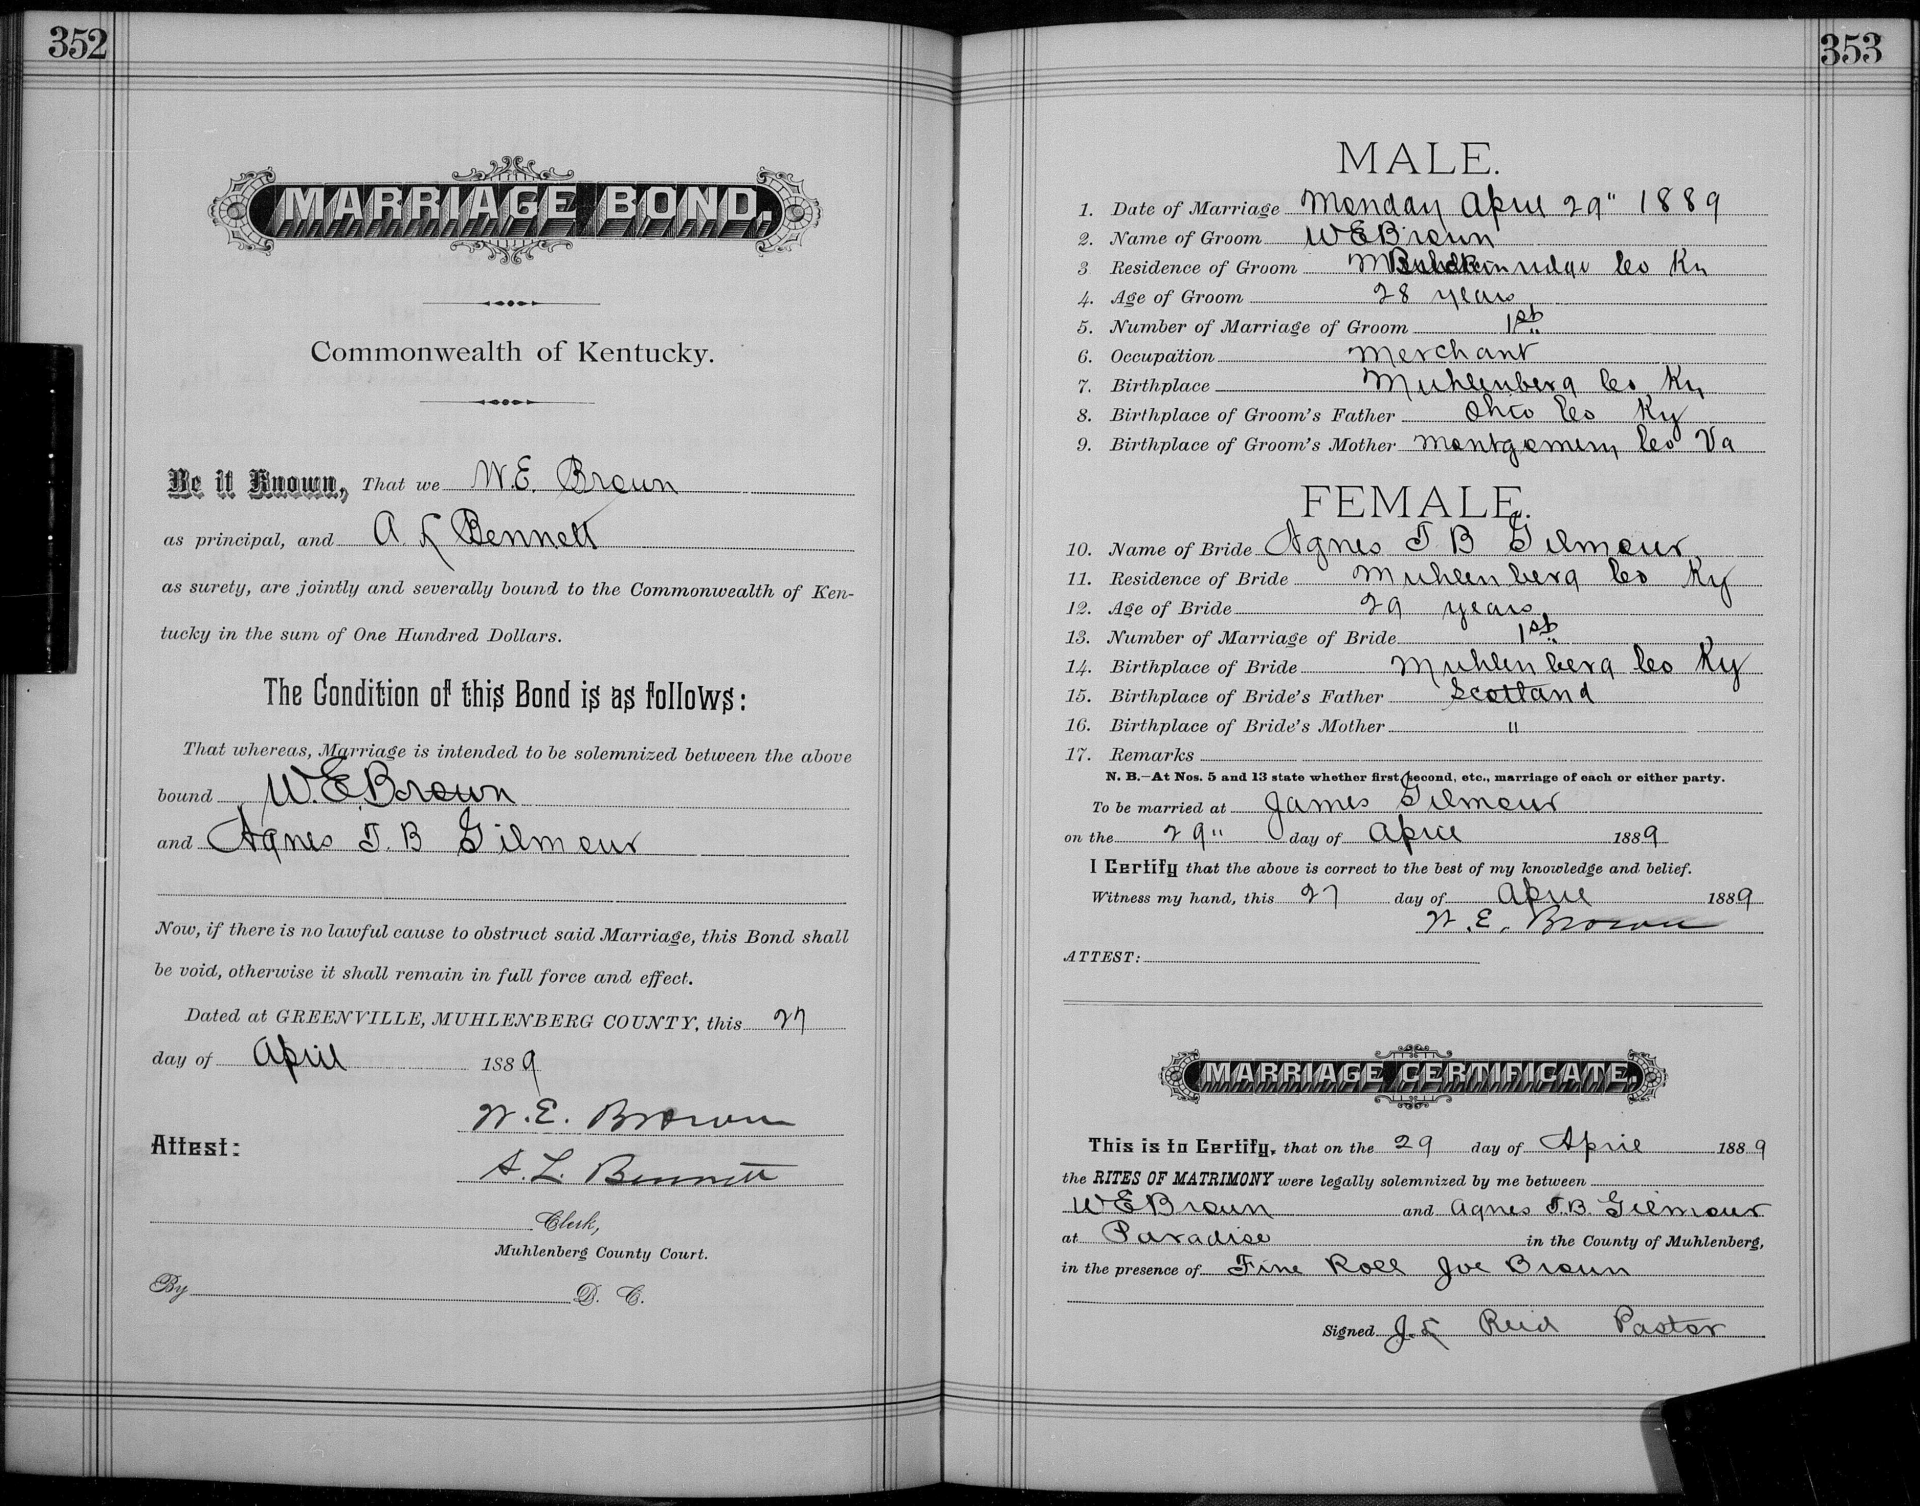 352
MARRIAGE BOND.
Commonwealth of Kentucky.
Be it Known, That we W. E. Brown
as principal, and A. L Bennett
as surety, are jointly and severally bound to the Commonwealth of Ken-
tucky in the sum of One Hundred Dollars.
The Condition of this Bond is as follows:
That whereas, Marriage is intended to be solemnized between the above
bound W. E Brown
and Agnes T. B Gilmour
Now, if there is no lawful cause to obstruct said Marriage, this Bond shall
be void, otherwise it shall remain in full force and effect.
Dated at GREENVILLE, MUHLENBERG COUNTY, this 27
day of April 1889
W. E. Brown
Attest:
A. L. Bennett
Clerk,
Muhlenberg County Court.
By D. C.
353
MALE.
1. Date of Marriage Monday April 29" 1889
2. Name of Groom W E Brown
3 Residence of Groom Co Ky
4. Age of Groom 28 years
5. Number of Marriage of Groom 1st
6. Occupation Merchant
7. Birthplace Muhlenberg Co Ky
8. Birthplace of Groom's Father Ohio Co Ky
9. Birthplace of Groom's Mother Montgomery Co Va
FEMALE.
10. Name of Bride Agnes T B Gilmour
11. Residence of Bride Muhlenberg Co Ky
12. Age of Bride 29 years
13. Number of Marriage of Bride 1st
14. Birthplace of Bride Muhlenberg Co Ky
15. Birthplace of Bride's Father Scotland
16. Birthplace of Bride's Mother "
17. Remarks
N. B.—At Nos. 5 and 13 state whether first, second, etc., marriage of each or either party.
To be married at James Gilmour
on the 29" day of April 1889
I Certify that the above is correct to the best of my knowledge and belief.
Witness my hand, this 27 day of April 1889
W. E. Brown
ATTEST:
MARRIAGE CERTIFICATE.
This is to Certify, that on the 29 day of April 1889
the RITES OF MATRIMONY were legally solemnized by me between
W E Brown and Agnes T. B. Gilmour
at Paradise in the County of Muhlenberg,
in the presence of Fine Roll Joe Brown
Signed J. L Reid Pastor